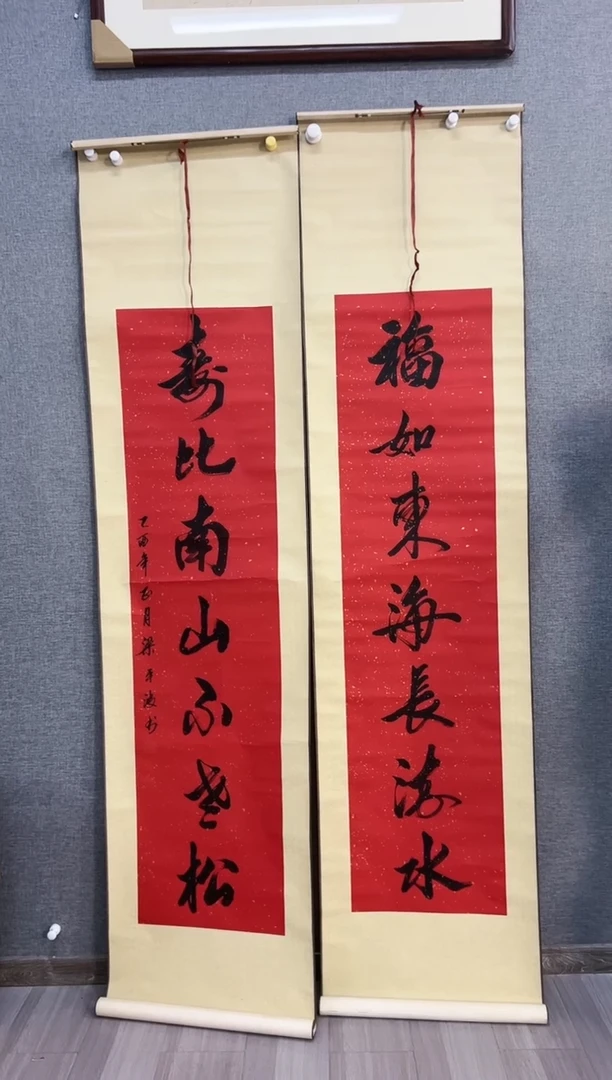 福如東海長流水
壽比南山不老松
乙酉年正月梁平波书